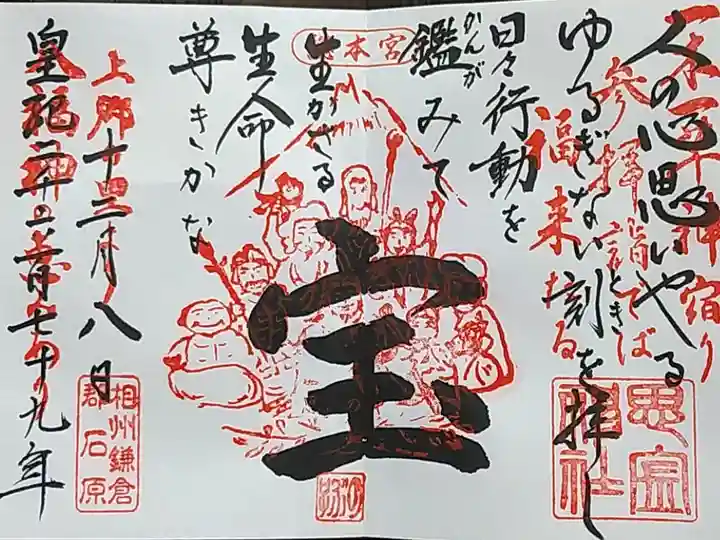 人の心思いやる
ゆるぎない刻を拝し
とき
日々行動を
鑑みて
かんが
生かさる
生命
尊きかな
宝
十二月八日
皇紀二千六百七十九年
本宮
参拝詣でば
福来たる
宿り
思金
神社
相州鎌倉
郡石原